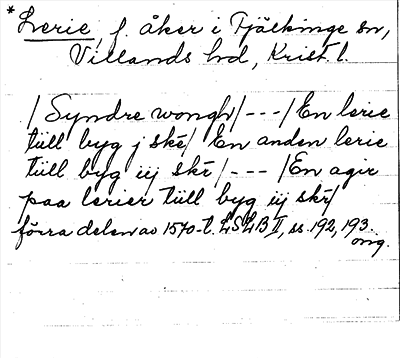 * Lerie, f. åker i Fjälkinge sn,
Villands hd, Krist. l.
/Syndre wongh/---/En lerie
tiill byg j skē/ En anden lerie
tiill byg iij skē/---/En agir
paa lerier tiill byg iij skē/
förra delen av 1570-t. LSLB II, ss. 192, 193.
omg.